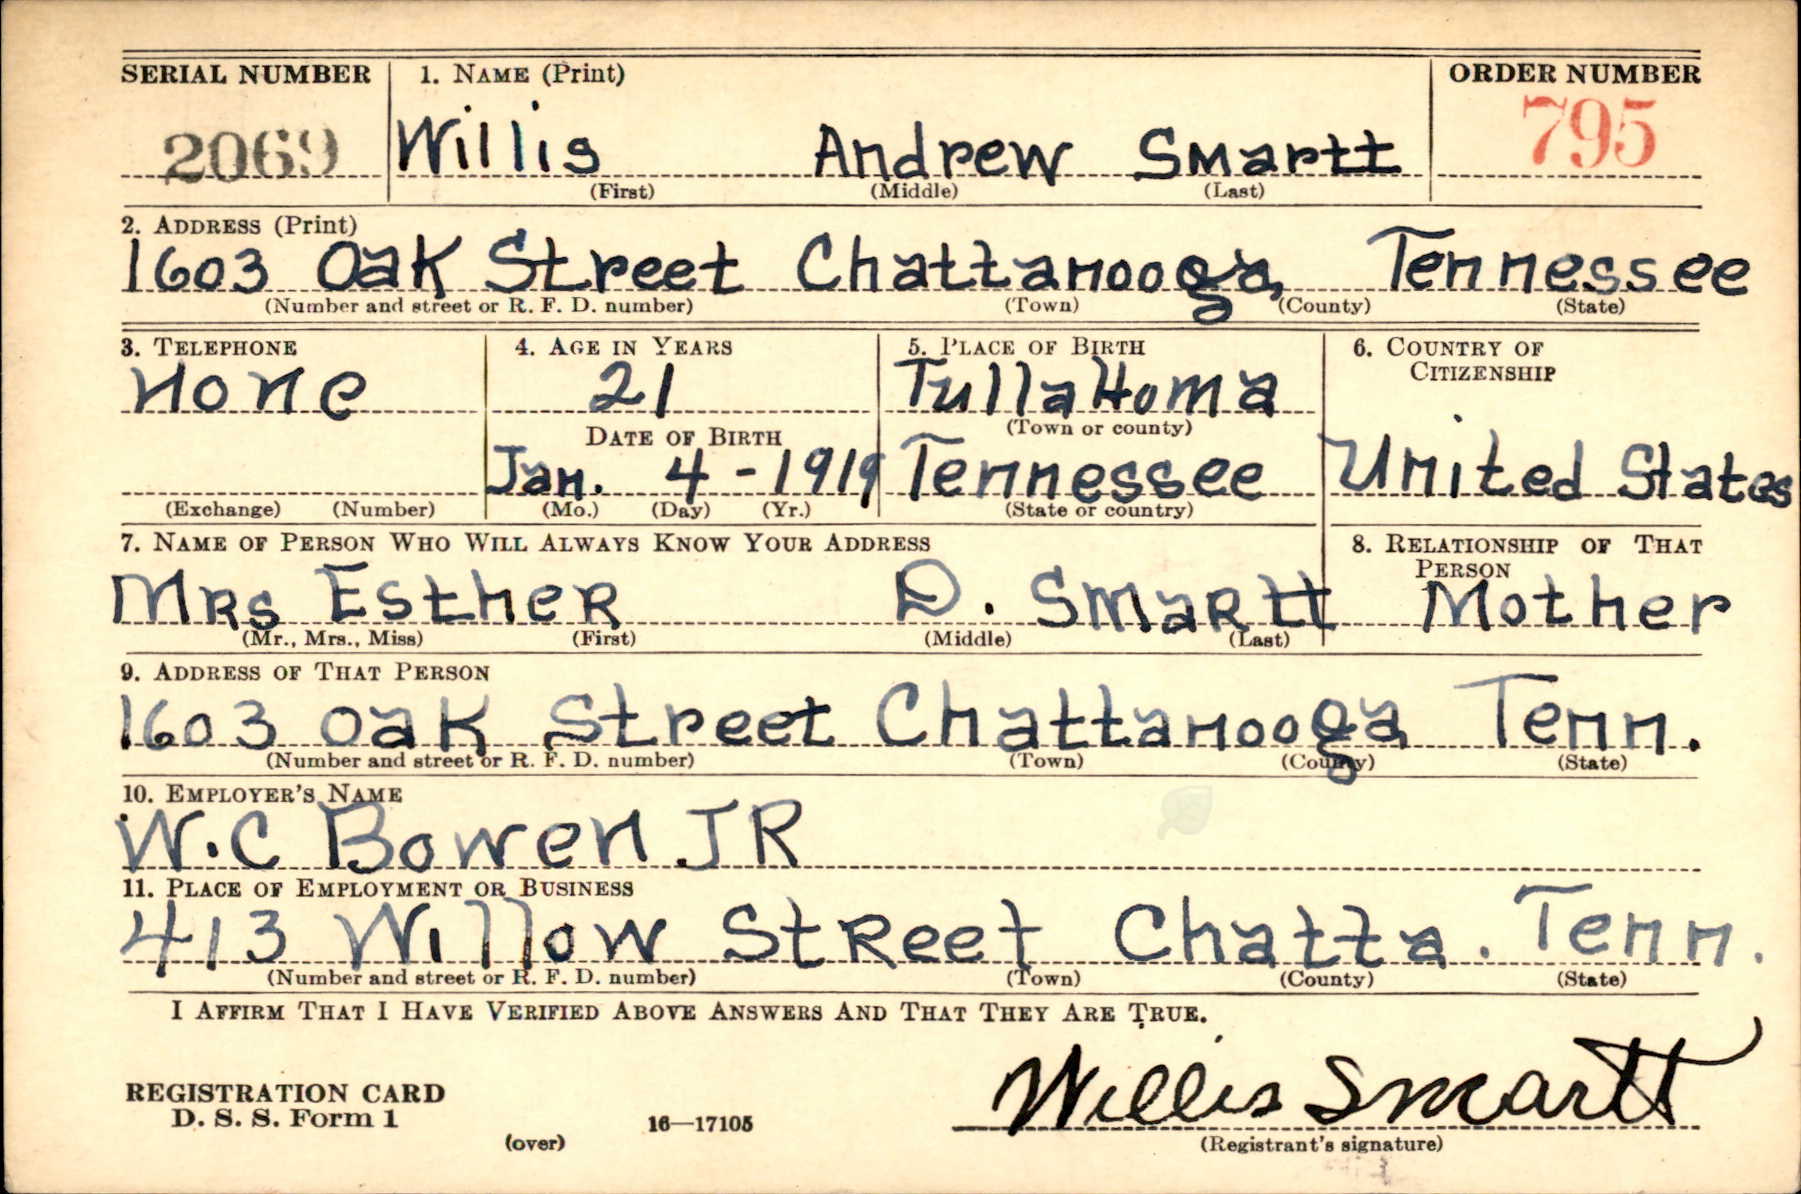 SERIAL NUMBER 1. NAME (Print) ORDER NUMBER
2069 Willis Andrew Smartt 795
(First) (Middle) (Last)
2. ADDRESS (Print)
1603 Oak Street Chattanooga, Tennessee
(Number and street or R. F. D. number) (Town) (County) (State)
3. TELEPHONE 4. AGE IN YEARS 5. PLACE OF BIRTH 6. COUNTRY OF
CITIZENSHIP
None 21 TullaHoma
DATE OF BIRTH (Town or county)
Jan. 4 - 1919 Tennessee United States
(Exchange) (Number) (Mo.) (Day) (Yr.) (State or country)
7. NAME OF PERSON WHO WILL ALWAYS KNOW YOUR ADDRESS 8. RELATIONSHIP OF THAT
PERSON
MRS EstheR D. SmaRtt Mother
(Mr., Mrs., Miss) (First) (Middle) (Last)
9. ADDRESS OF THAT PERSON
1603 Oak Street Chattanooga Tenn.
(Number and street or R. F. D. number) (Town) (County) (State)
10. EMPLOYER'S NAME
W.C Bowen JR
11. PLACE OF EMPLOYMENT OR BUSINESS
413 Willow StReet Chatta. Tenn.
(Number and street or R. F. D. number) (Town) (County) (State)
I AFFIRM THAT I HAVE VERIFIED ABOVE ANSWERS AND THAT THEY ARE TRUE.
REGISTRATION CARD
D. S. S. Form 1
(over) 16—17105
Willis Smartt
(Registrant's signature)